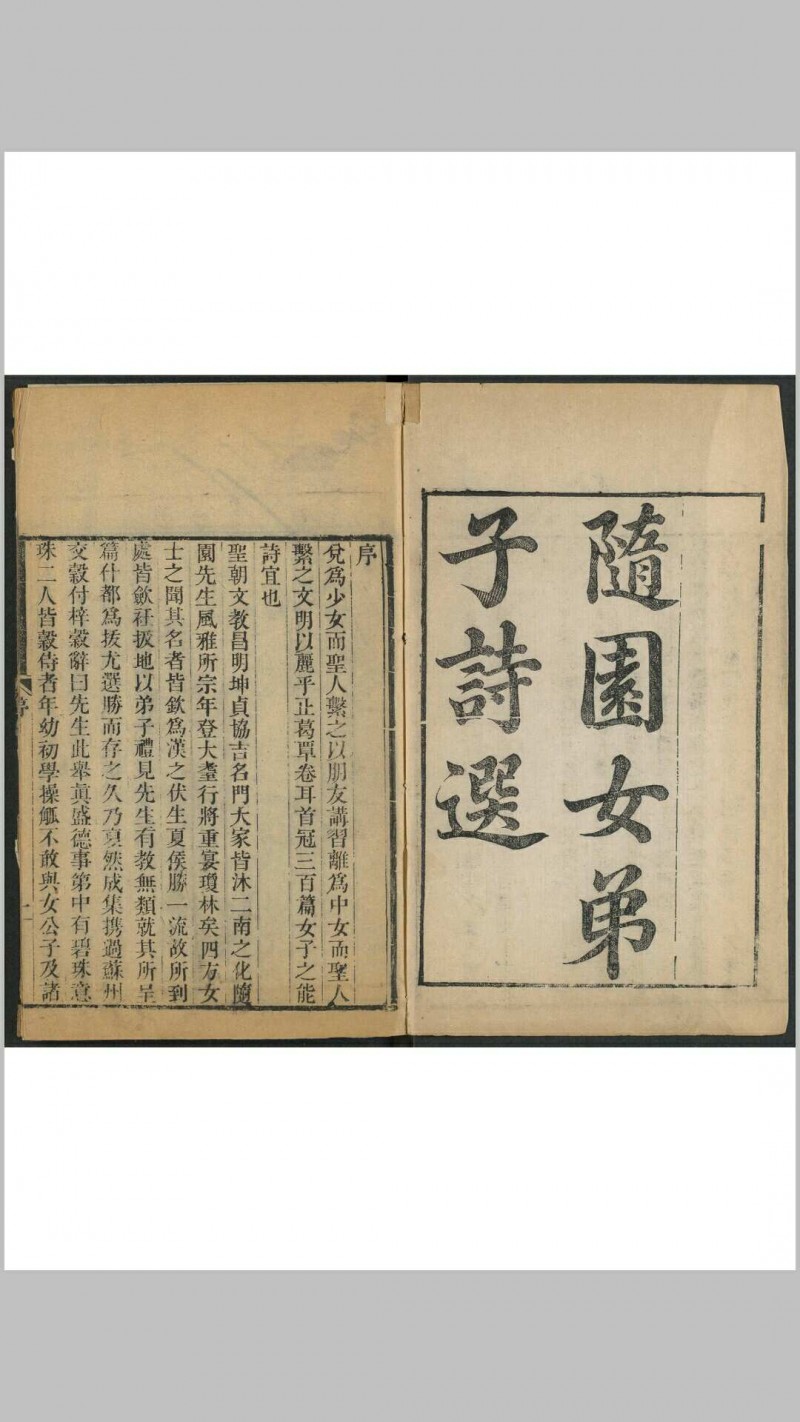 隨園女弟
子詩選
序
兌爲少女而聖人繫之以朋友講習離爲中女而聖人
繫之文明以麗乎正葛覃卷耳首冠三百篇女子之能
詩宜也
聖朝文教昌明坤貞協吉名門大家皆沐二南之化隨
園先生風雅所宗年登大耋行將重宴瓊林矣四方女
士之聞其名者皆欽爲漢之伏生夏侯勝一流故所到
處皆斂衽扱地以弟子禮見先生有教無類就其所呈
篇什都爲拔尤選勝而存之久乃裒然成集携過蘇州
交穀付梓穀辭曰先生此舉真盛德事第中有碧珠意
珠二人皆穀侍者年幼初學操觚不敢與女公子及諸
序
一